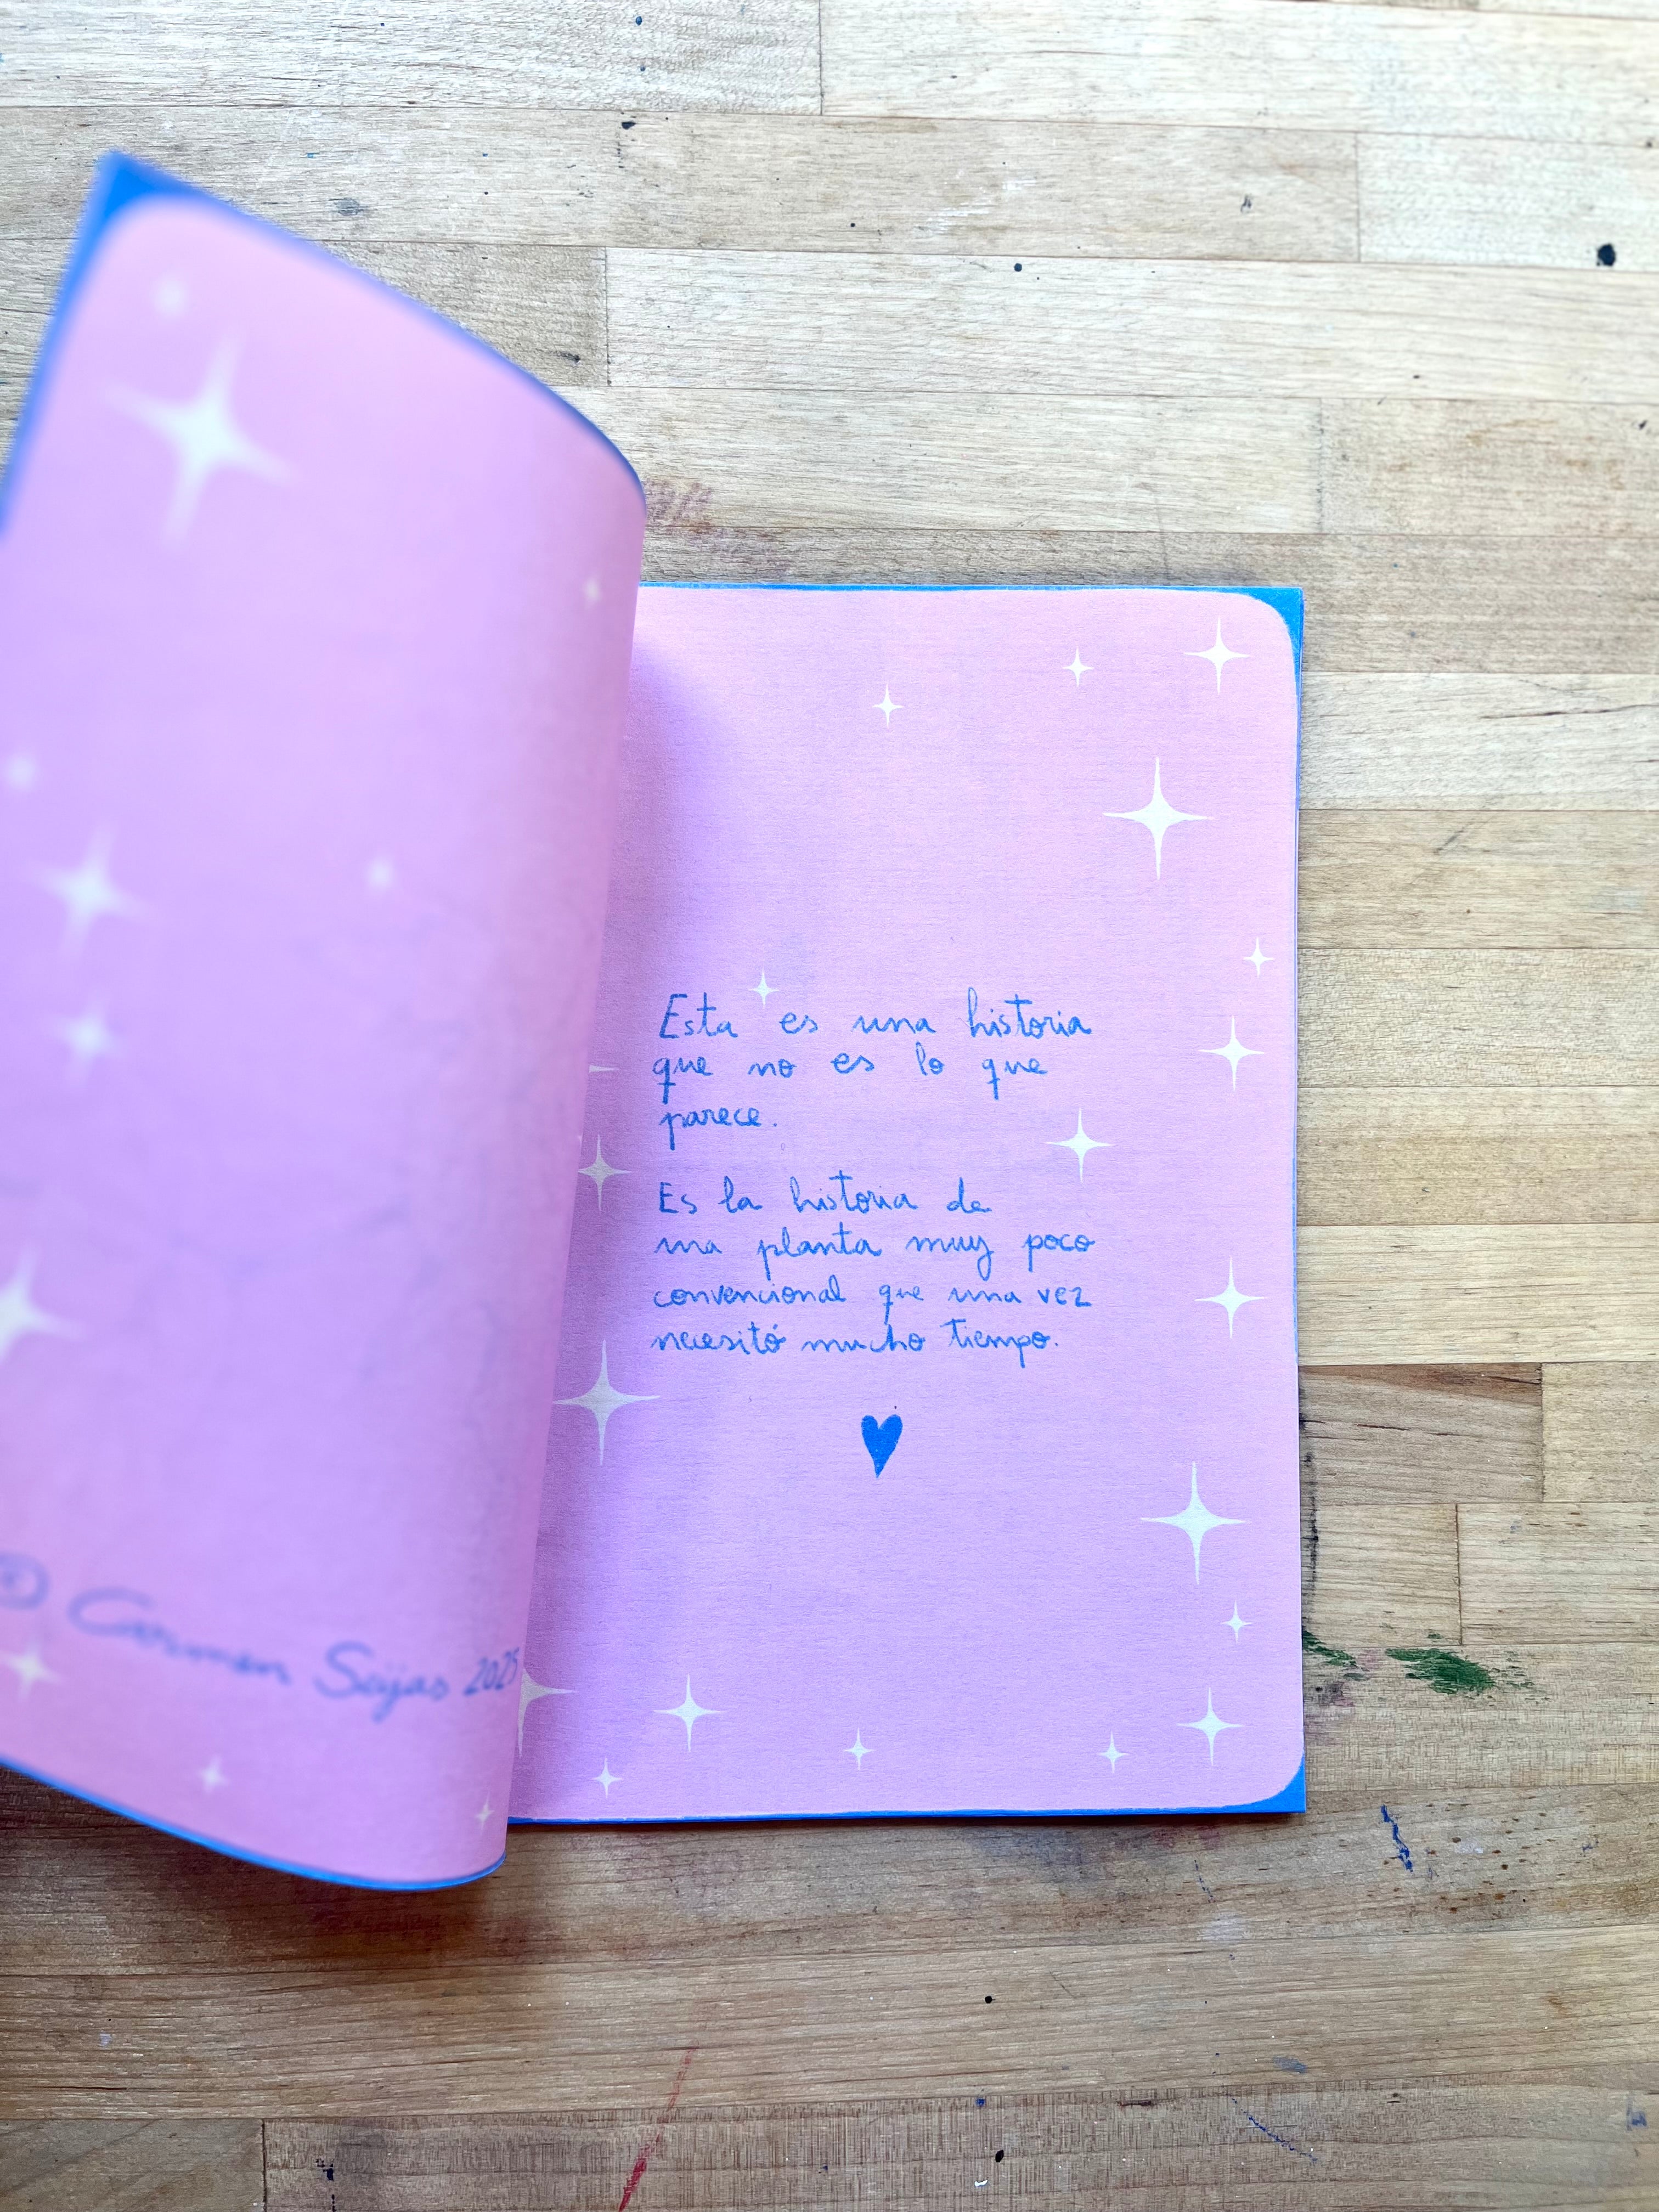 © Carmen Seijas 2025
Esta es una historia
que no es lo que
parece.
Es la historia de
una planta muy poco
convencional que una vez
necesitó mucho tiempo.